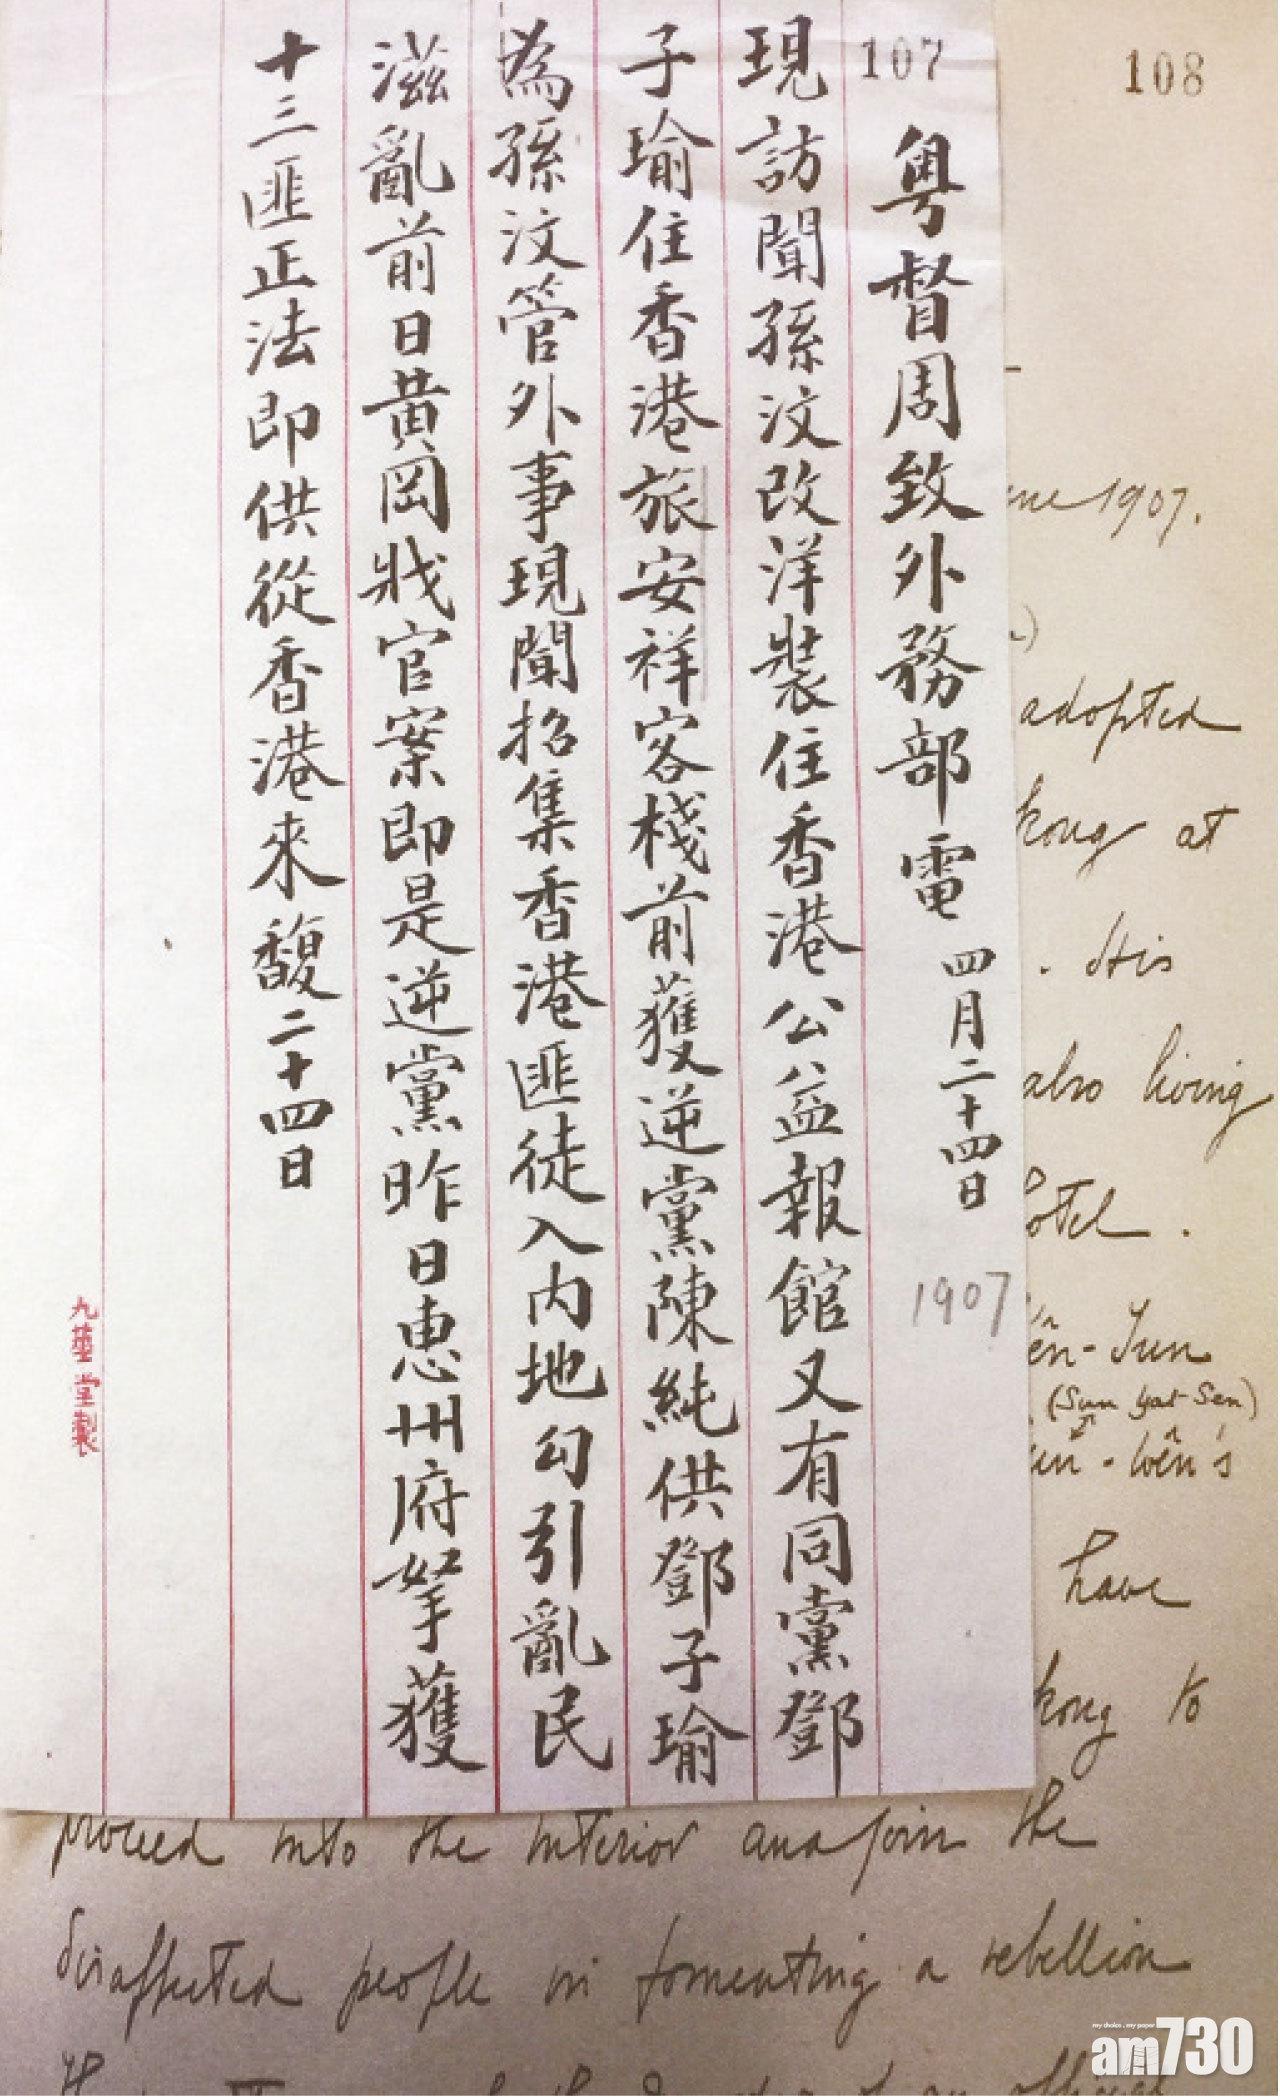 107
粤督周致外務部電 四月二十四日
1907
現訪聞孫汶改洋裝住香港公益報館又有同黨鄧
子瑜住香港旅安祥客栈前獲逆黨陳純供鄧子瑜
為孫汶管外事現聞招集香港匪徒入內地勾引亂民
滋亂前日黃岡戕官案即是逆黨昨日惠州府拏獲
十三匪正法即供從香港來馥二十四日
九華堂製
108
1907.
adopted
kong at
. His
also living
hotel .
ên-Sun
(Sun Yat Sen)
un-wên's
have
kong to
proceed into the interior and join the
disaffected people in fomenting a rebellion
my choice . my paper
am730